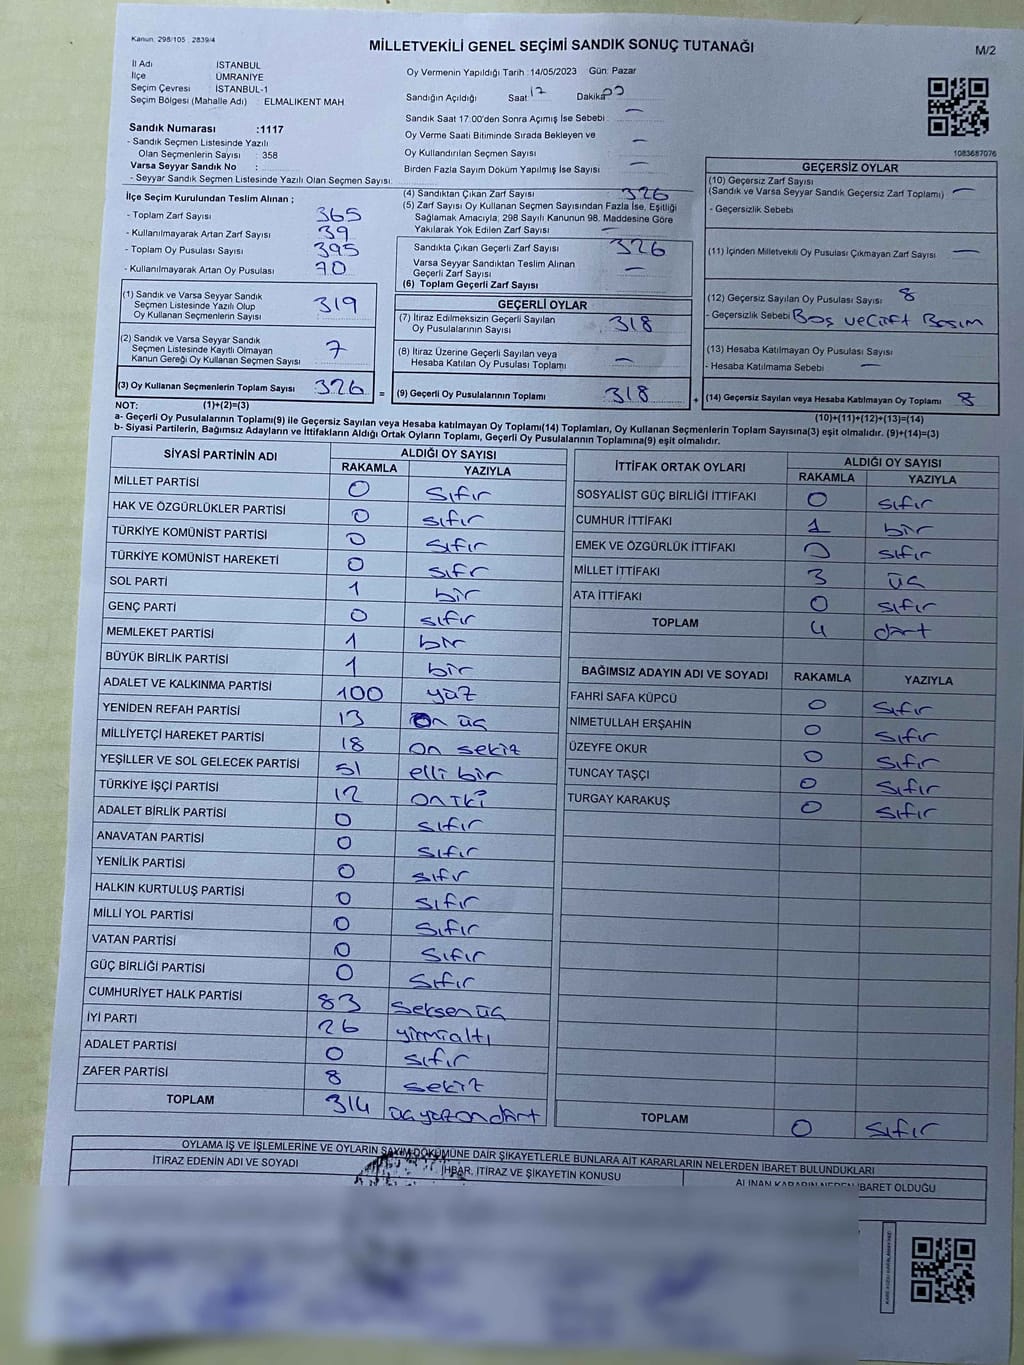 Kanun: 298/105 , 2839/4
MİLLETVEKİLİ GENEL SEÇİMİ SANDIK SONUÇ TUTANAĞI
M/2
İl Adı : İSTANBUL
İlçe : ÜMRANİYE
Seçim Çevresi : İSTANBUL-1
Seçim Bölgesi (Mahalle Adı) : ELMALIKENT MAH.
Sandık Numarası :1117
- Sandık Seçmen Listesinde Yazılı
Olan Seçmenlerin Sayısı : 358
Varsa Seyyar Sandık No :
- Seyyar Sandık Seçmen Listesinde Yazılı Olan Seçmen Sayısı:
Oy Vermenin Yapıldığı Tarih :14/05/2023 Gün: Pazar
Sandığın Açıldığı Saat 17 Dakika
Sandık Saat 17:00'den Sonra Açımış İse Sebebi : —
Oy Verme Saati Bitiminde Sırada Bekleyen ve
Oy Kullandırılan Seçmen Sayısı —
Birden Fazla Sayım Döküm Yapılmış İse Sayısı —
1083687076
İlçe Seçim Kurulundan Teslim Alınan ;
- Toplam Zarf Sayısı 365
- Kullanılmayarak Artan Zarf Sayısı 39
- Toplam Oy Pusulası Sayısı 395
- Kullanılmayarak Artan Oy Pusulası 70
(1) Sandık ve Varsa Seyyar Sandık
Seçmen Listesinde Yazılı Olup
Oy Kullanan Seçmenlerin Sayısı 319
(2) Sandık ve Varsa Seyyar Sandık
Seçmen Listesinde Kayıtlı Olmayan
Kanun Gereği Oy Kullanan Seçmen Sayısı 7
(3) Oy Kullanan Seçmenlerin Toplam Sayısı 326 =
(4) Sandıktan Çıkan Zarf Sayısı 326
(5) Zarf Sayısı Oy Kullanan Seçmen Sayısından Fazla İse, Eşitliği
Sağlamak Amacıyla; 298 Sayılı Kanunun 98. Maddesine Göre
Yakılarak Yok Edilen Zarf Sayısı —
Sandıkta Çıkan Geçerli Zarf Sayısı 326
Varsa Seyyar Sandıktan Teslim Alınan
Geçerli Zarf Sayısı —
(6) Toplam Geçerli Zarf Sayısı
GEÇERLİ OYLAR
(7) İtiraz Edilmeksizin Geçerli Sayılan
Oy Pusulalarının Sayısı 318
(8) İtiraz Üzerine Geçerli Sayılan veya
Hesaba Katılan Oy Pusulası Toplamı —
(9) Geçerli Oy Pusulalarının Toplamı 318 +
GEÇERSİZ OYLAR
(10) Geçersiz Zarf Sayısı
(Sandık ve Varsa Seyyar Sandık Geçersiz Zarf Toplamı) —
- Geçersizlik Sebebi
(11) İçinden Milletvekili Oy Pusulası Çıkmayan Zarf Sayısı —
(12) Geçersiz Sayılan Oy Pusulası Sayısı 8
- Geçersizlik Sebebi Boş ve Çift Basım
(13) Hesaba Katılmayan Oy Pusulası Sayısı
- Hesaba Katılmama Sebebi —
(14) Geçersiz Sayılan veya Hesaba Katılmayan Oy Toplamı 8
NOT: (1)+(2)=(3)
(10)+(11)+(12)+(13)=(14)
a- Geçerli Oy Pusulalarının Toplamı(9) ile Geçersiz Sayılan veya Hesaba katılmayan Oy Toplamı(14) Toplamları, Oy Kullanan Seçmenlerin Toplam Sayısına(3) eşit olmalıdır. (9)+(14)=(3)
b- Siyasi Partilerin, Bağımsız Adayların ve İttifakların Aldığı Ortak Oyların Toplamı, Geçerli Oy Pusulalarının Toplamına(9) eşit olmalıdır.
SİYASİ PARTİNİN ADI ALDIĞI OY SAYISI
RAKAMLA YAZIYLA
MİLLET PARTİSİ 0 sıfır
HAK VE ÖZGÜRLÜKLER PARTİSİ 0 sıfır
TÜRKİYE KOMÜNİST PARTİSİ 0 sıfır
TÜRKİYE KOMÜNİST HAREKETİ 0 sıfr
SOL PARTİ 1 bir
GENÇ PARTİ 0 sıfır
MEMLEKET PARTİSİ 1 bir
BÜYÜK BİRLİK PARTİSİ 1 bir
ADALET VE KALKINMA PARTİSİ 100 yüz
YENİDEN REFAH PARTİSİ 13 on üç
MİLLİYETÇİ HAREKET PARTİSİ 18 on sekiz
YEŞİLLER VE SOL GELECEK PARTİSİ 51 elli bir
TÜRKİYE İŞÇİ PARTİSİ 12 on iki
ADALET BİRLİK PARTİSİ 0 sıfır
ANAVATAN PARTİSİ 0 sıfır
YENİLİK PARTİSİ 0 sıfır
HALKIN KURTULUŞ PARTİSİ 0 sıfır
MİLLİ YOL PARTİSİ 0 sıfır
VATAN PARTİSİ 0 sıfır
GÜÇ BİRLİĞİ PARTİSİ 0 sıfır
CUMHURİYET HALK PARTİSİ 83 seksen üç
İYİ PARTİ 26 yirmialtı
ADALET PARTİSİ 0 sıfır
ZAFER PARTİSİ 8 sekiz
TOPLAM 314 üçyüzondört
İTTİFAK ORTAK OYLARI ALDIĞI OY SAYISI
RAKAMLA YAZIYLA
SOSYALİST GÜÇ BİRLİĞİ İTTİFAKI 0 sıfır
CUMHUR İTTİFAKI 1 bir
EMEK VE ÖZGÜRLÜK İTTİFAKI 0 sıfır
MİLLET İTTİFAKI 3 üç
ATA İTTİFAKI 0 sıfır
TOPLAM 4 dört
BAĞIMSIZ ADAYIN ADI VE SOYADI RAKAMLA YAZIYLA
FAHRİ SAFA KÜPCÜ 0 sıfır
NİMETULLAH ERŞAHİN 0 sıfır
ÜZEYFE OKUR 0 sıfır
TUNCAY TAŞÇI 0 sıfır
TURGAY KARAKUŞ 0 sıfır
TOPLAM 0 sıfır
OYLAMA İŞ VE İŞLEMLERİNE VE OYLARIN SAYIM DÖKÜMÜNE DAİR ŞİKAYETLERLE BUNLARA AİT KARARLARIN NELERDEN İBARET BULUNDUKLARI
İTİRAZ EDENİN ADI VE SOYADI
İHBAR, İTİRAZ VE ŞİKAYETİN KONUSU
ALINAN KARARIN NEDEN İBARET OLDUĞU